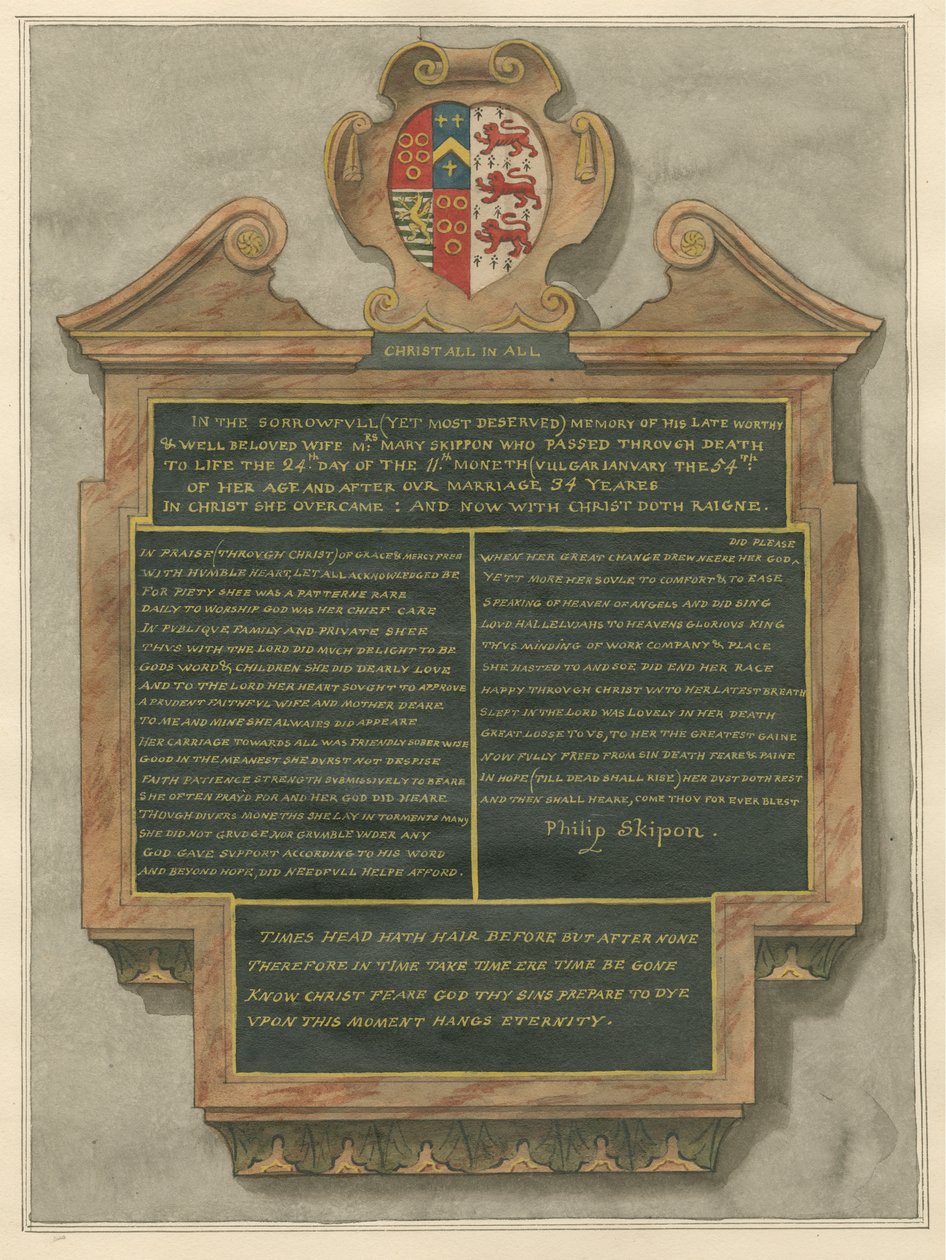 CHRIST ALL IN ALL
IN THE SORROWFVLL (YET MOST DESERVED) MEMORY OF HIS LATE WORTHY
& WELL BELOVED WIFE MRS. MARY SKIPPON WHO PASSED THROVGH DEATH
TO LIFE THE 24.TH DAY OF THE 11.TH MONETH (VULGAR IANVARY THE 54TH:
OF HER AGE AND AFTER OVR MARRIAGE 34 YEARES
IN CHRIST SHE OVERCAME : AND NOW WITH CHRIST DOTH RAIGNE.
IN PRAISE (THROVGH CHRIST) OF GRACE & MERCY FREE
WITH HVMBLE HEART, LET ALL ACKNOWLEDGED BE
FOR PIETY SHEE WAS A PATTERNE RARE
DAILY TO WORSHIP GOD WAS HER CHIEF CARE
IN PVBLIQVE FAMILY AND PRIVATE SHEE
THVS WITH THE LORD DID MVCH DELIGHT TO BE
GODS WORD & CHILDREN SHE DID DEARLY LOVE
AND TO THE LORD HER HEART SOVGHT TO APPROVE
A PRUDENT FAITHFVL WIFE AND MOTHER DEARE
TO ME AND MINE SHE ALWAIES DID APPEARE
HER CARRIAGE TOWARDS ALL WAS FRIENDLY SOBER WISE
GOOD IN THE MEANEST SHE DVRST NOT DESPISE
FAITH PATIENCE STRENGTH SVBMISSIVELY TO BEARE
SHE OFTEN PRAY'D FOR AND HER GOD DID HEARE
THOVGH DIVERS MONETHS SHE LAY IN TORMENTS MANY
SHE DID NOT GRVDGE NOR GRVMBLE VNDER ANY
GOD GAVE SVPPORT ACCORDING TO HIS WORD
AND BEYOND HOPE, DID NEEDFVLL HELPE AFFORD.
DID PLEASE
WHEN HER GREAT CHANGE DREW NEERE HER GOD^
YETT MORE HER SOVLE TO COMFORT & TO EASE
SPEAKING OF HEAVEN OF ANGELS AND DID SING
LOVD HALLELUJAHS TO HEAVENS GLORIOVS KING
THVS MINDING OF WORK COMPANY & PLACE
SHE HASTED TO AND SOE DID END HER RACE
HAPPY THROVGH CHRIST VNTO HER LATEST BREATH
SLEPT IN THE LORD WAS LOVELY IN HER DEATH
GREAT LOSSE TO VS, TO HER THE GREATEST GAINE
NOW FVLLY FREED FROM SIN DEATH FEARE & PAINE
IN HOPE (TILL DEAD SHALL RISE) HER DVST DOTH REST
AND THEN SHALL HEARE, COME THOV FOR EVER BLEST
Philip Skipon.
TIMES HEAD HATH HAIR BEFORE BUT AFTER NONE
THEREFORE IN TIME TAKE TIME ERE TIME BE GONE
KNOW CHRIST FEARE GOD THY SINS PREPARE TO DYE
VPON THIS MOMENT HANGS ETERNITY.